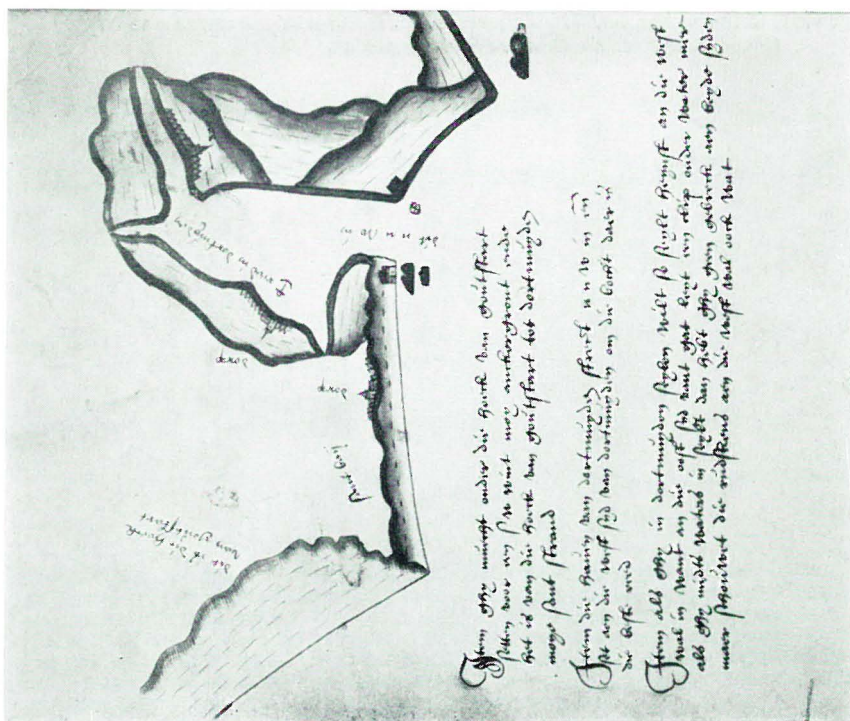 dit is die houck
van goutstart
sant bay
dorp
dorp
reed in dortmuyden
n n w in
Item ghy muight onder die houck van goutstart
setten voor een w wint moy anckergront ende
het is van die houck van goutstart tot dortmuyden
moye sant strand
Item die haven van dortmuyden n n w in en
ist aen die west syd van dortmuyden om die borcht daer is
die beste reed
Item als ghy in dortmuyden seylen wilt so seylt an die west
wal in want an die oost syd vant gat leyt een clip onder water mer
als ghy midts waters in seylt dan hebt ghy gheen gebreck aen beyde syden
maer schouwet die aen die west wal oock wat